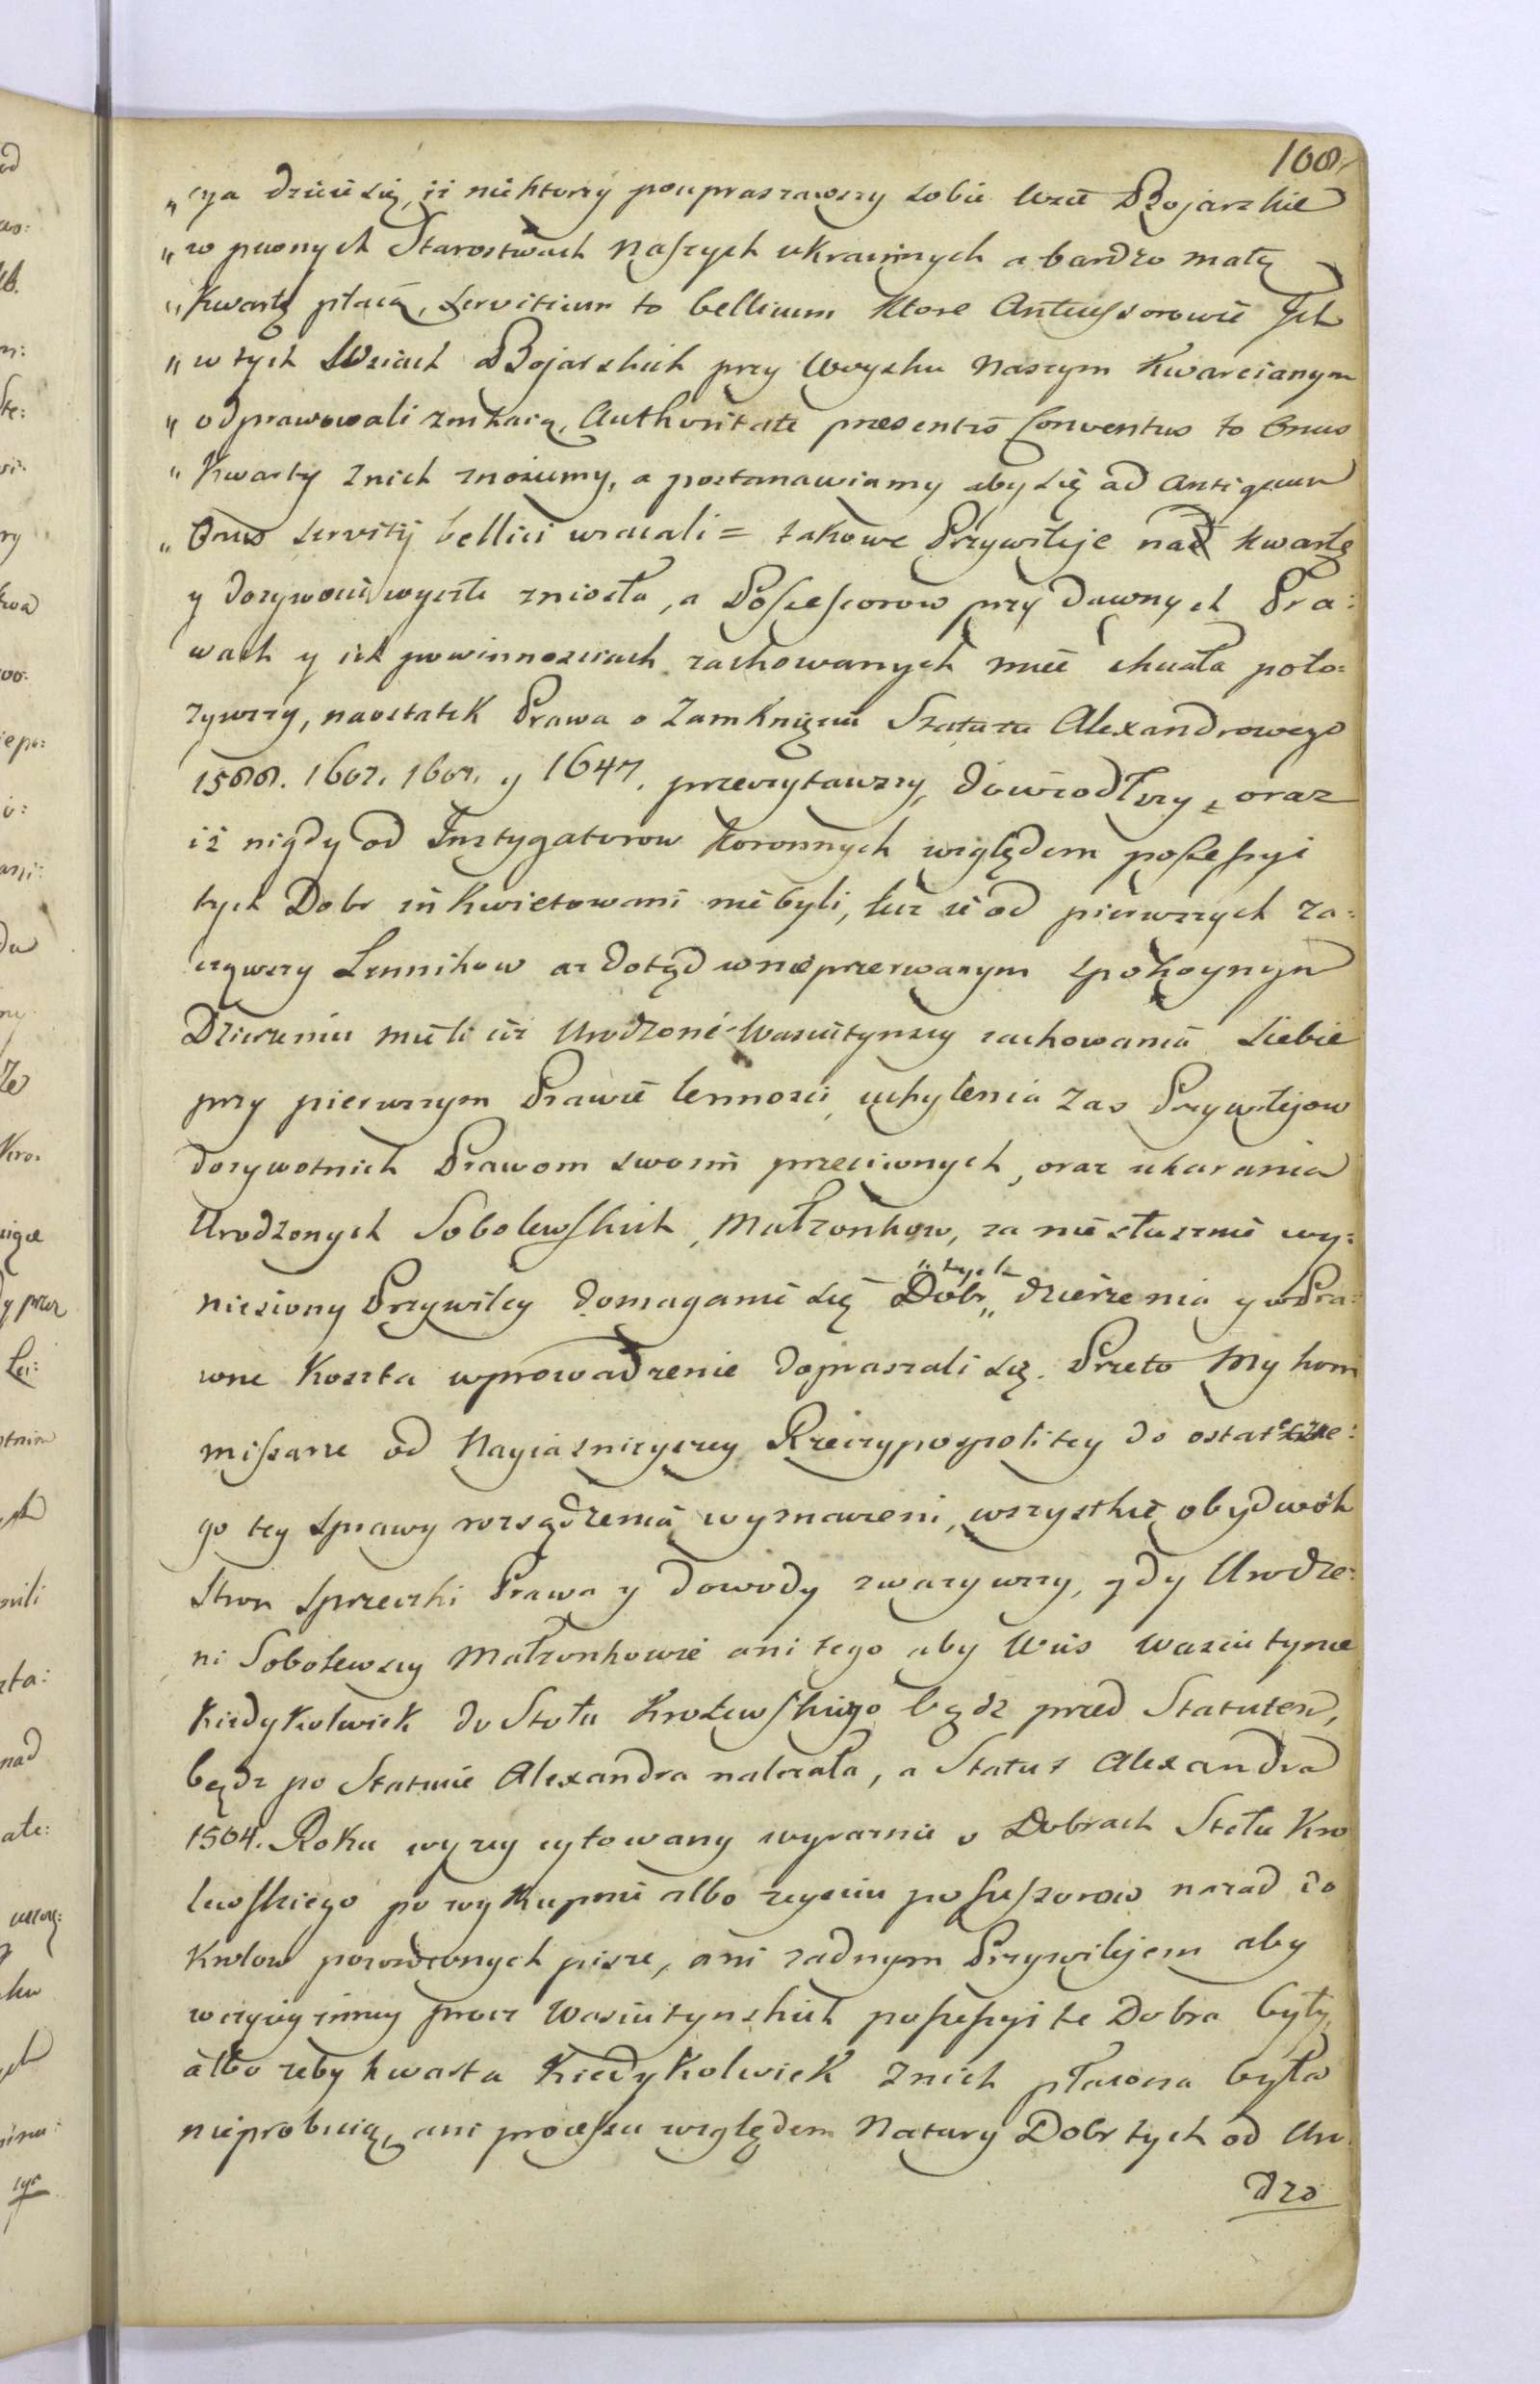 108
„ cya dzieie się, iż niektorzy poupraszawszy sobie Wsie Bojarskie
„ w pewnych Starostwach Naszych ukrainnych a bardzo małą
„ Kwartę płacą, servitium to bellicum ktore Antecessorowie Ich
„ w tych Wsiach Bojarskich przy Woysku Naszym Kwarcianym
„ odprawowali zmkaią, Authoritate presentis Conventus to Onus
„ Kwarty znich znosiemy, a postanawiamy aby się ad antiquum
„ Onus servitij bellici wracali = takowe Przywileje nad kwartę
y dozywocia wyszłe zniosła, a Possessorow przy dawnych Pra:
wach y ich powinnosciach zachowanych mieć chciała poło:
żywszy, naostatek Prawa o Zamknięciu Statutu Alexandrowego
1588. 1607. 1607. y 1647. przeczytawszy, dowiodłszy, oraz
iż nigdy od Instygatorow Koronnych względem possessyi
tych Dobr inkwietowani niebyli, lecz iż od pierwszych za:
cząwszy Lennikow aż dotąd w nieprzerwanym spokoynym
Dzierzeniu mieli ciż Urodzoni Wasiutynscy zachowania siebie
przy pierwszym Prawie lennosci, uchylenia zas Przywilejow
dozywotnich Prawom swoim przeciwnych, oraz ukarania
Urodzonych Sobolewskich, Małżonkow, za niesłusznie wy:
niesiony Przywiley domaganie się Dobr „tych„ dzierżenia y w Pra:
wne Koszta wprowadzenie dopraszali się. Przeto My kom
missarze od Nayiasnieyszey Rzeczypospolitey do ostateczne:
go tey sprawy rozsądzenia wyznaczeni, wszystkie obydwóh
Stron sprzeczki Prawa y dowody zwarzywszy, gdy Urodze:
ni Sobolewscy Małżonkowie ani tego aby Wieś Wasiutynce
Kiedykolwiek do Stołu Krolewskiego bądz przed Statutem,
bądz po Statucie Alexandra należała, a Statut Alexandra
1504. Roku wyzey cytowany wyraznie o Dobrach Stołu Kro
lewskiego po wykupnie albo zeyściu possessorow nazad do
Krolow powroconych pisze, ani zadnym Przywilejem aby
w czyieyinney procz Wasiutynskich possessyi te Dobra były,
albo żeby kwarta Kiedykolwiek znich płacona była
nieprobuią, ani processu względem Natury Dobr tych od Uro
dzo